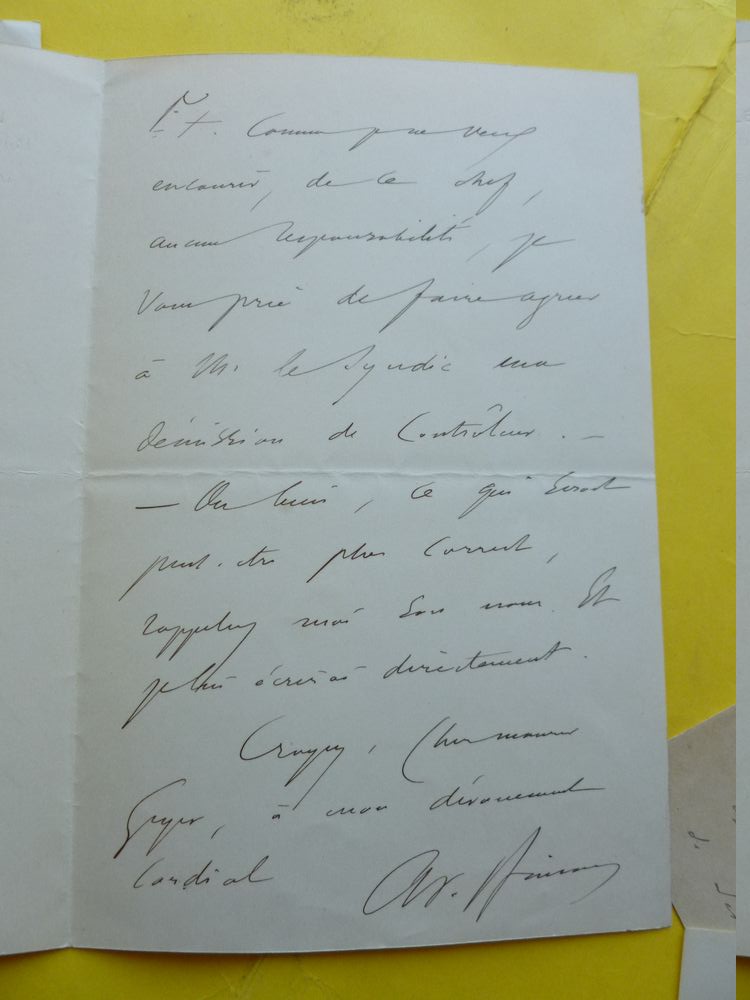 Comme je ne veux
encourir, de ce chef,
aucune responsabilité, je
vous prie de faire agréer
à M. le Syndic ma
démission de Contrôleur. —
— Ou bien, ce qui serait
peut-être plus correct,
rappelez moi son nom. Et
je lui écrirai directement.
Croyez, cher monsieur
à mon dévouement
cordial